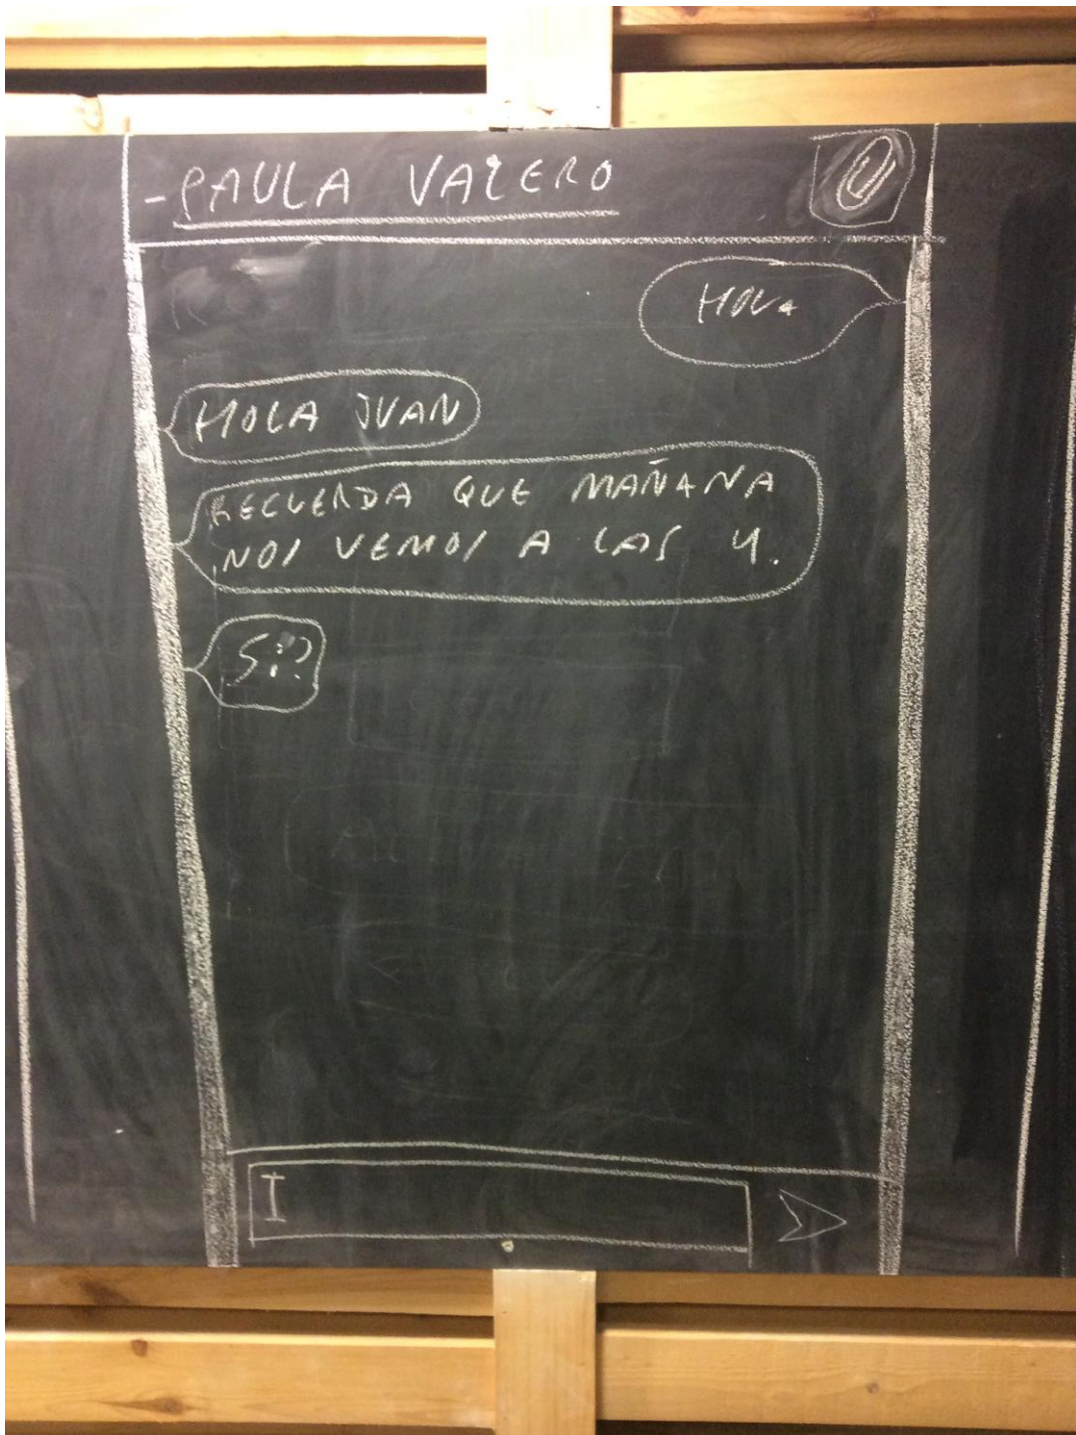 - PAULA VALERO
HOLA
HOLA JUAN
RECUERDA QUE MAÑANA
NOS VEMOS A LAS 4.
Si?